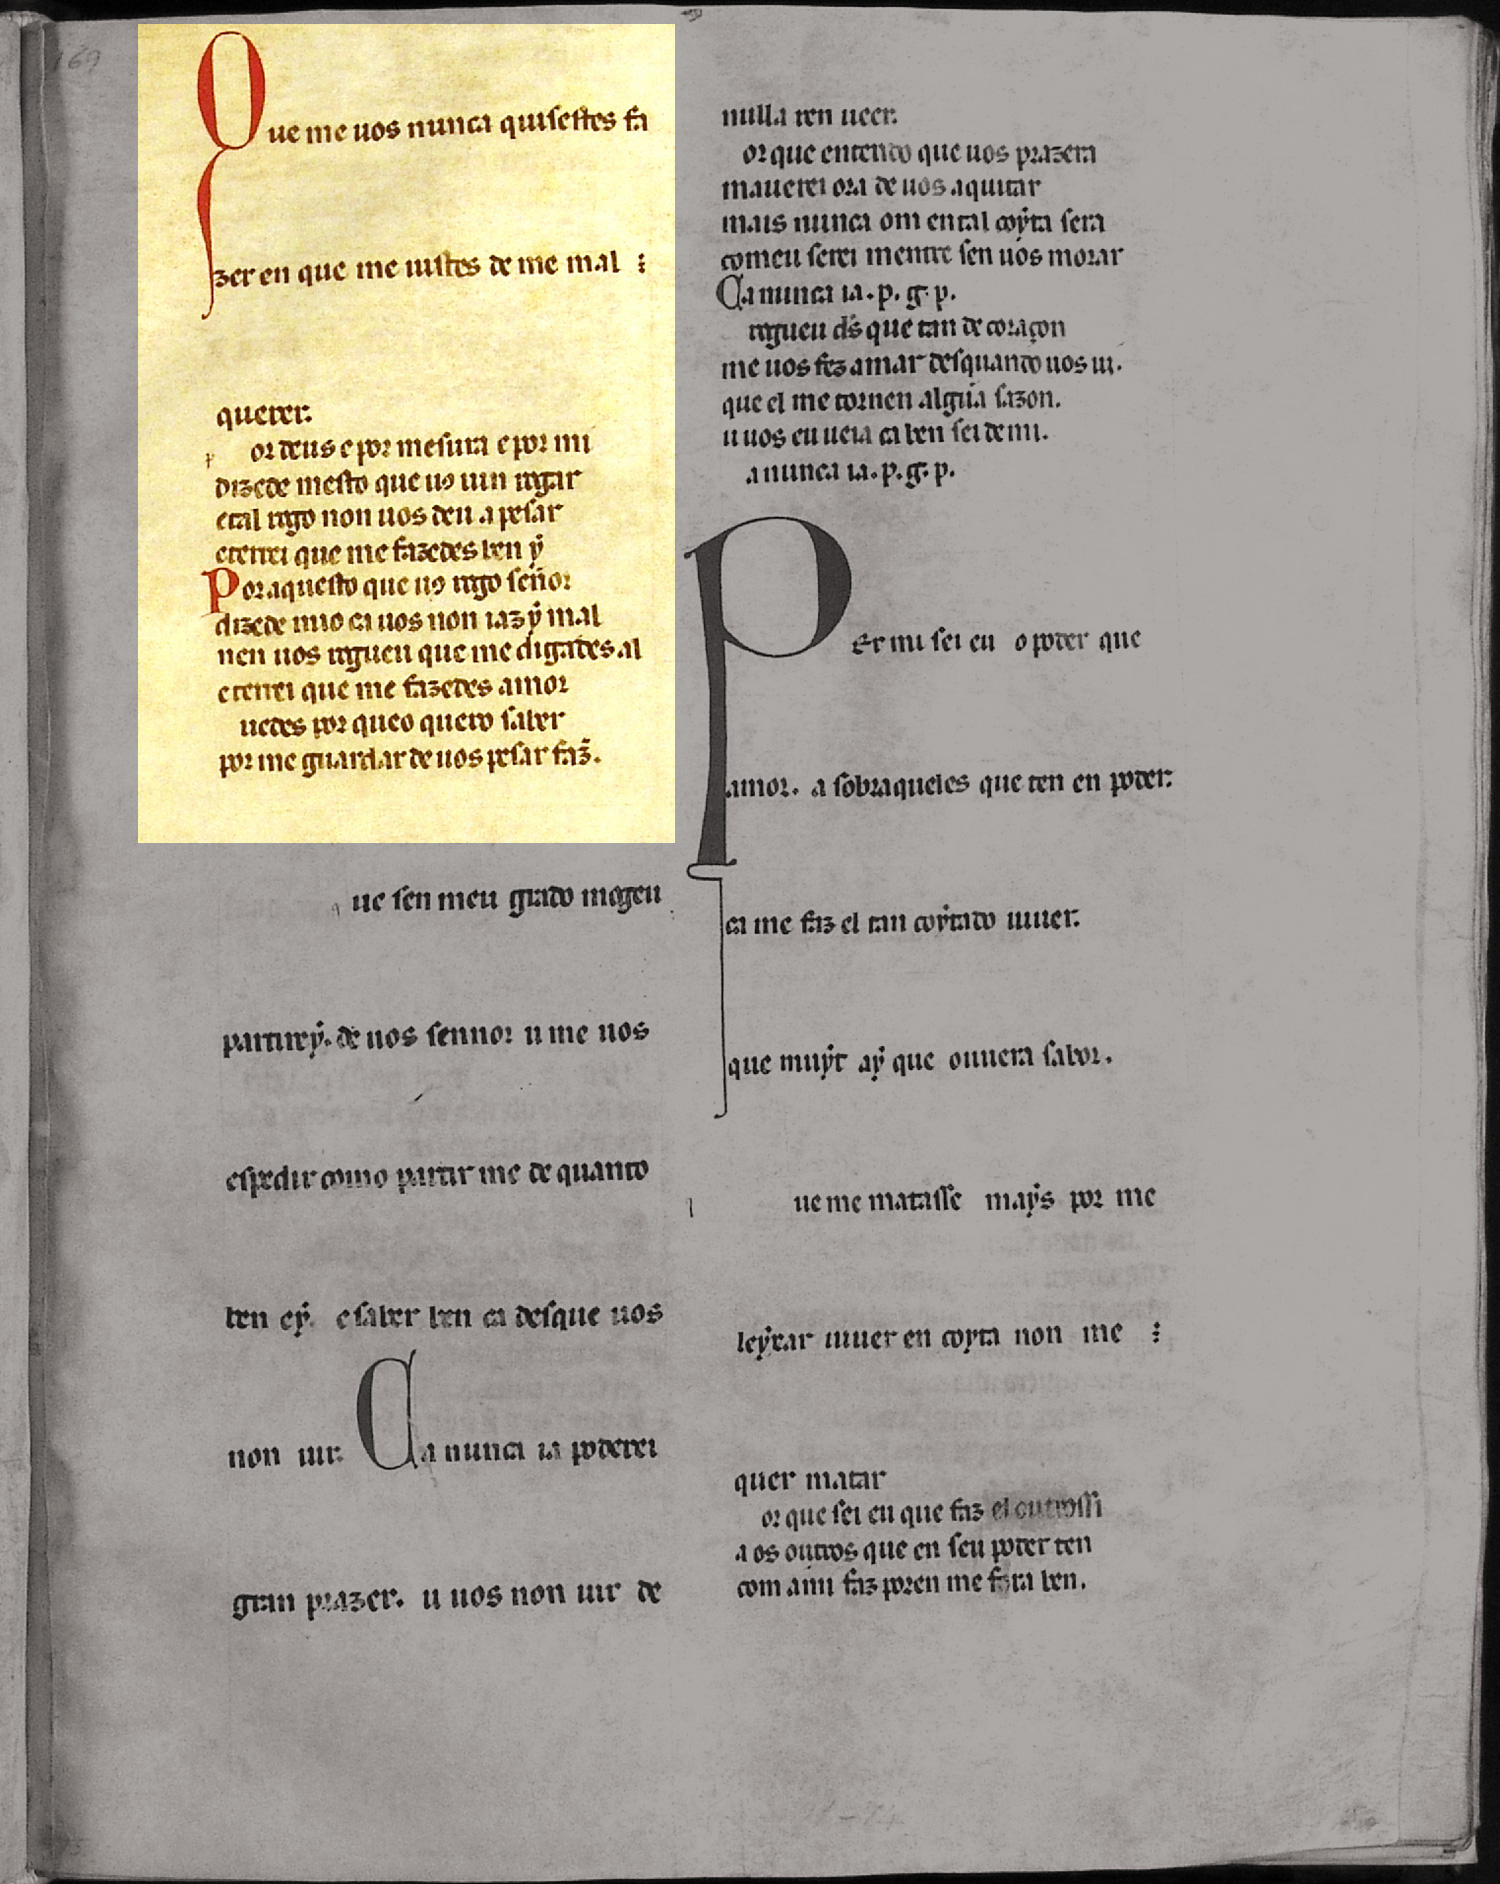 Que me uos nunca quisestes fa
zer en que me uistes de me mal :
querer.
or deus e por mesura e por mi
dizede mesto que uꝯ uin rogar
e tal rogo non uos deu a pesar
e terrei que me fazedes ben ẏ
Por aquesto que uꝯ rogo señor
dizede mio ca uos non iaz ẏ mal
nen uos rogueu que me digades al
e terrei que me fazedes amor
uedes por queo quero saber
por me guardar de uos pesar faz̃.
ue sen meu grado mogeu
partireẏ. de uos sennor u me uos
espedir como partir me de quanto
ben eẏ. e saber ben ca desque uos
non uir. Ca nunca ia poderei
gran prazer. u uos non uir de
nulla ren ueer.
or que entendo que uos prazera
mauerei ora de uos a quitar
mais nunca om en tal coẏta sera
comeu serei mentre sen uos morar
Ca nunca ia. p. g. p.
rogueu ds̃ que tan de coraçon
me uos fez amar desquando uos ui.
que el me tornen algũa sazon.
u uos eu ueia ca ben sei de mi.
a nunca ia. p. g. p.
Per mi sei eu o poder que
amor. a sobraqueles que ten en poder.
ca me faz el tan coẏtado uiuer.
que muẏt aẏ que ouuera sabor.
ue me matasse maẏs por me
leẏxar uiuer en coyta non me :
quer matar
or que sei eu que faz el outrossi
a os outros que en seu poder ten
com a mi faz poren me fora ben.